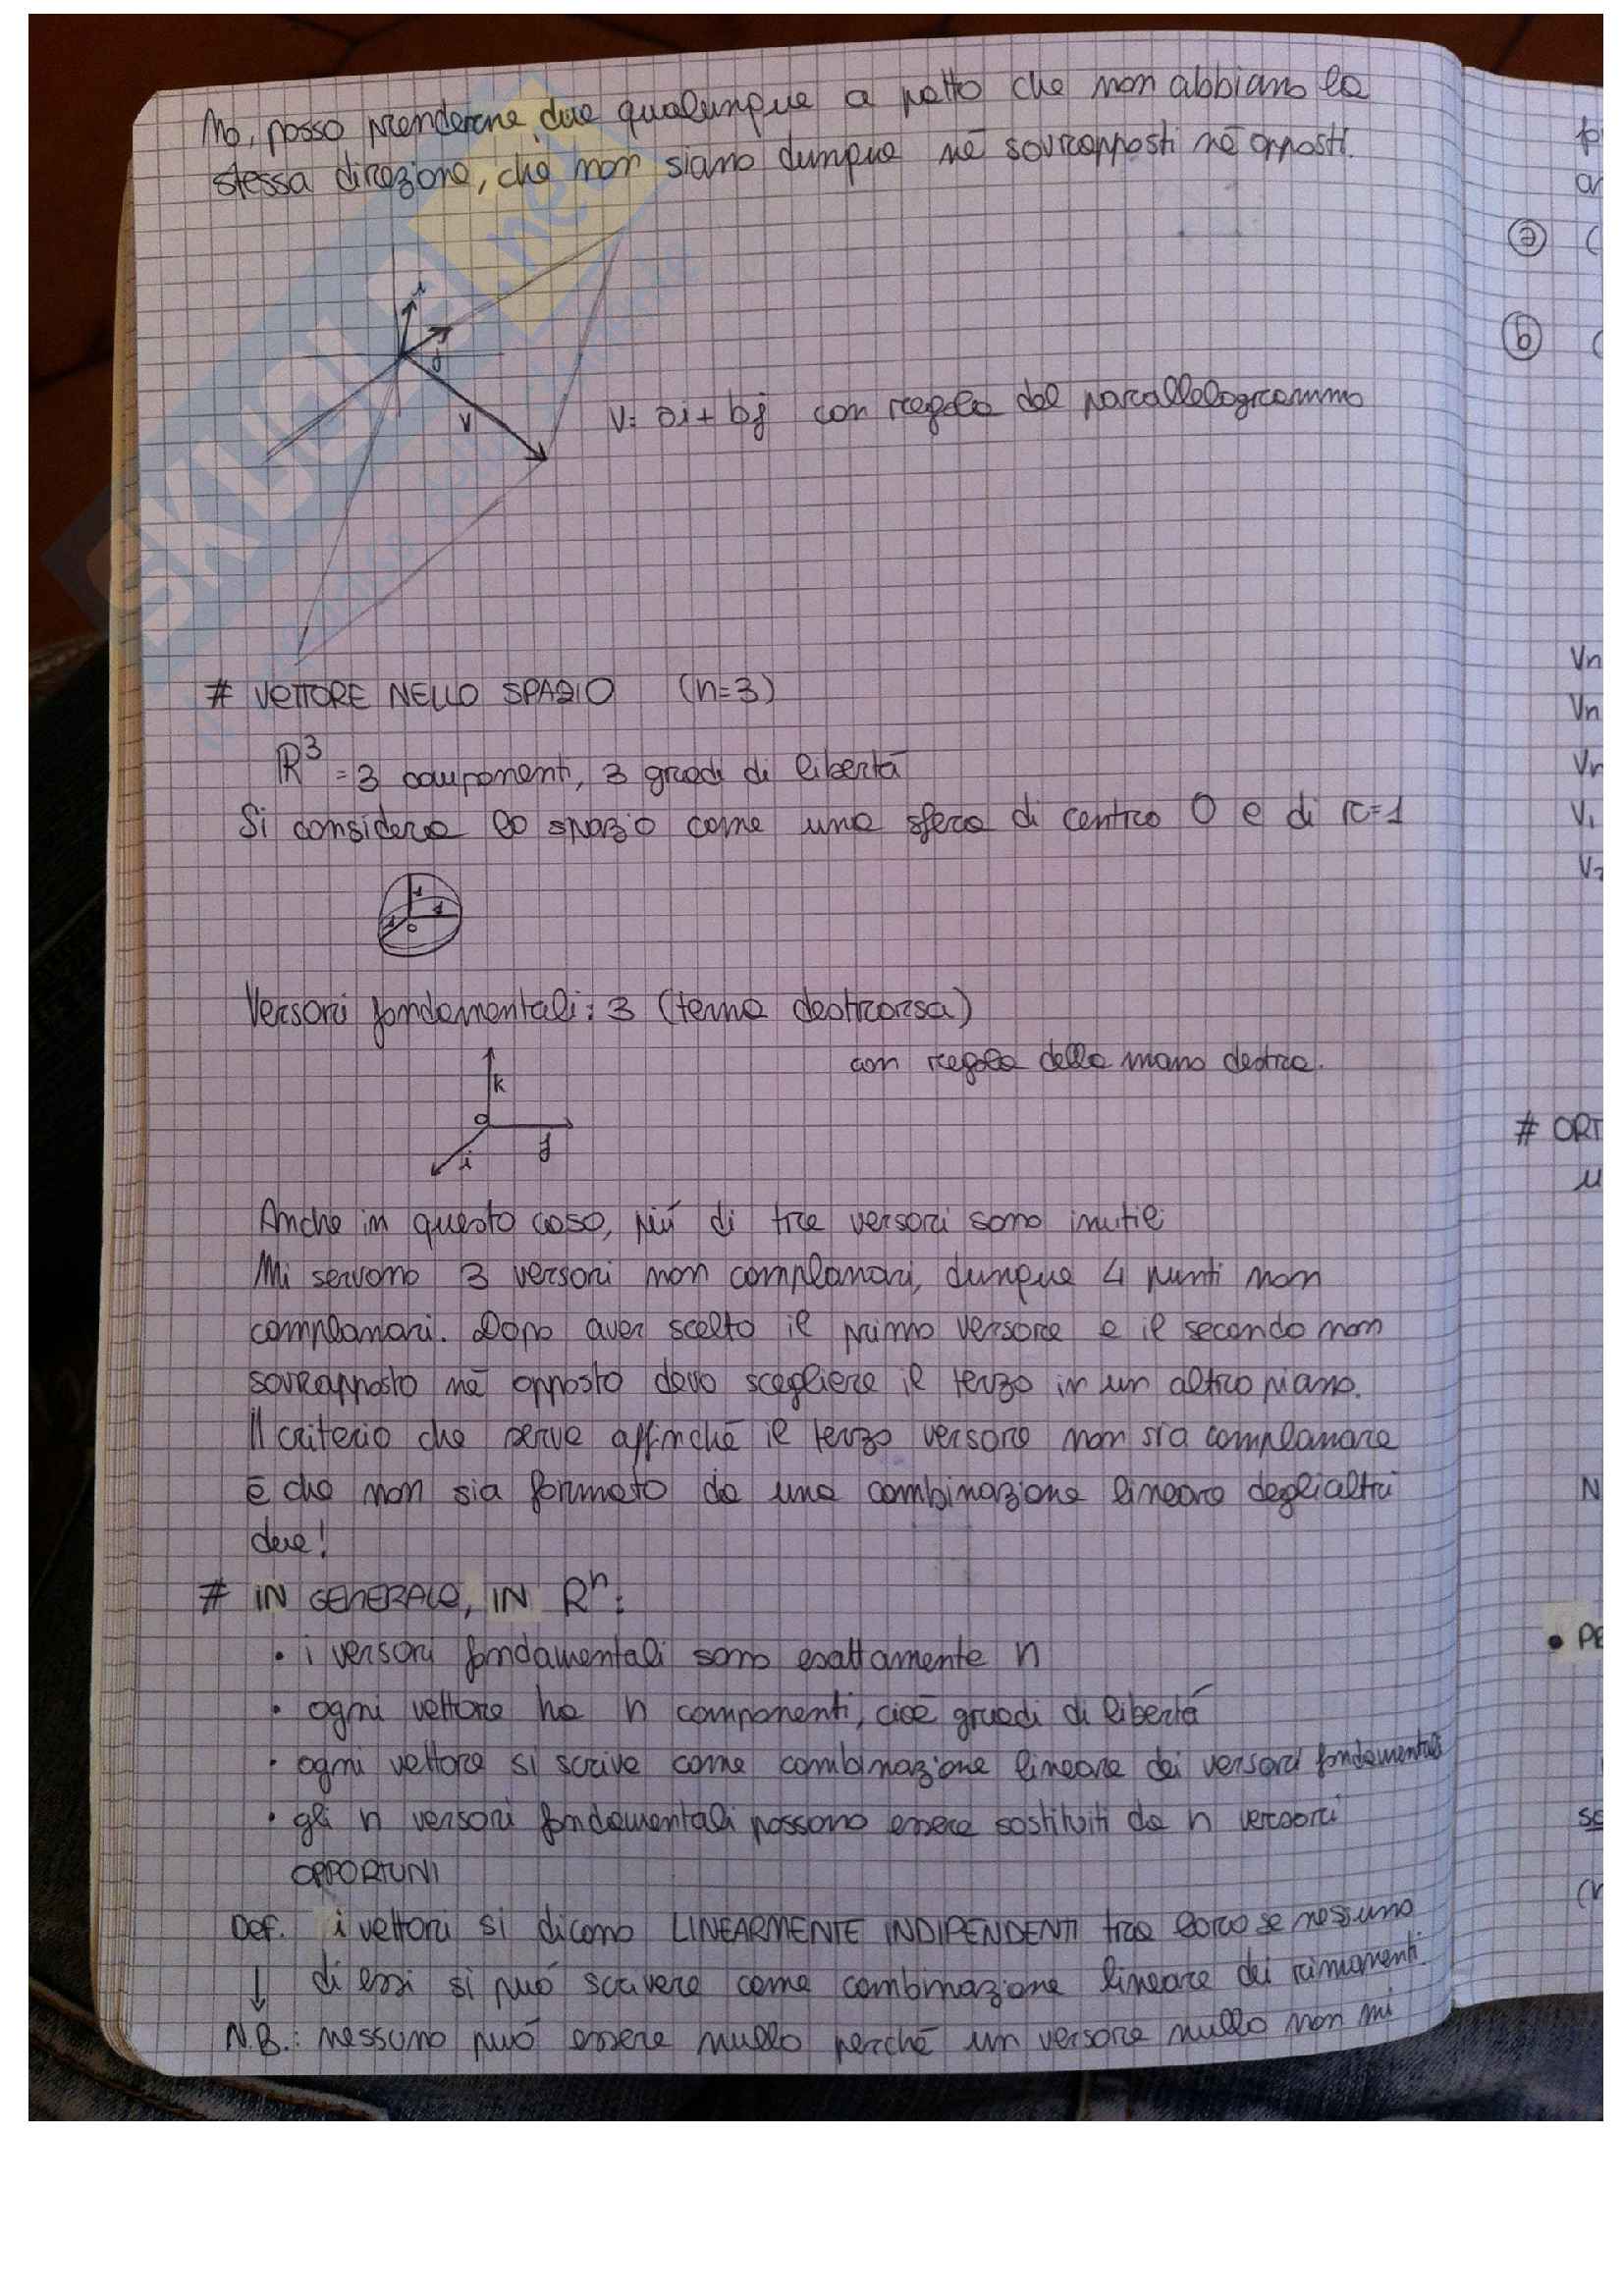 No, posso prenderne due qualunque a patto che non abbiano la
stessa direzione, che non siano dunque né sovrapposti né opposti.
i
j
v
V= ai + bj con regola del parallelogrammo
# VETTORE NELLO SPAZIO (n=3)
ℝ³ = 3 componenti, 3 gradi di libertà
Si considera lo spazio come una sfera di centro O e di r=1
1
1
1
O
Versori fondamentali: 3 (terna destrorsa)
con regola della mano destra.
k
O
j
i
Anche in questo caso, più di tre versori sono inutili
Mi servono 3 versori non complanari, dunque 4 punti non
complanari. Dopo aver scelto il primo versore e il secondo non
sovrapposto né opposto devo scegliere il terzo in un altro piano.
Il criterio che serve affinché il terzo versore non sia complanare
è che non sia formato da una combinazione lineare degli altri
due!
# IN GENERALE, IN Rⁿ:
• i versori fondamentali sono esattamente n
• ogni vettore ha n componenti, cioè gradi di libertà
• ogni vettore si scrive come combinazione lineare dei versori fondamentali
• gli n versori fondamentali possono essere sostituiti da n versori
OPPORTUNI
Def. i vettori si dicono LINEARMENTE INDIPENDENTI tra loro se nessuno
↓ di essi si può scrivere come combinazione lineare dei rimanenti.
N.B.: nessuno può essere nullo perché un versore nullo non mi
a
b
Vn
Vn
V₁
# ORT
N
• PE
SKUOLA.net